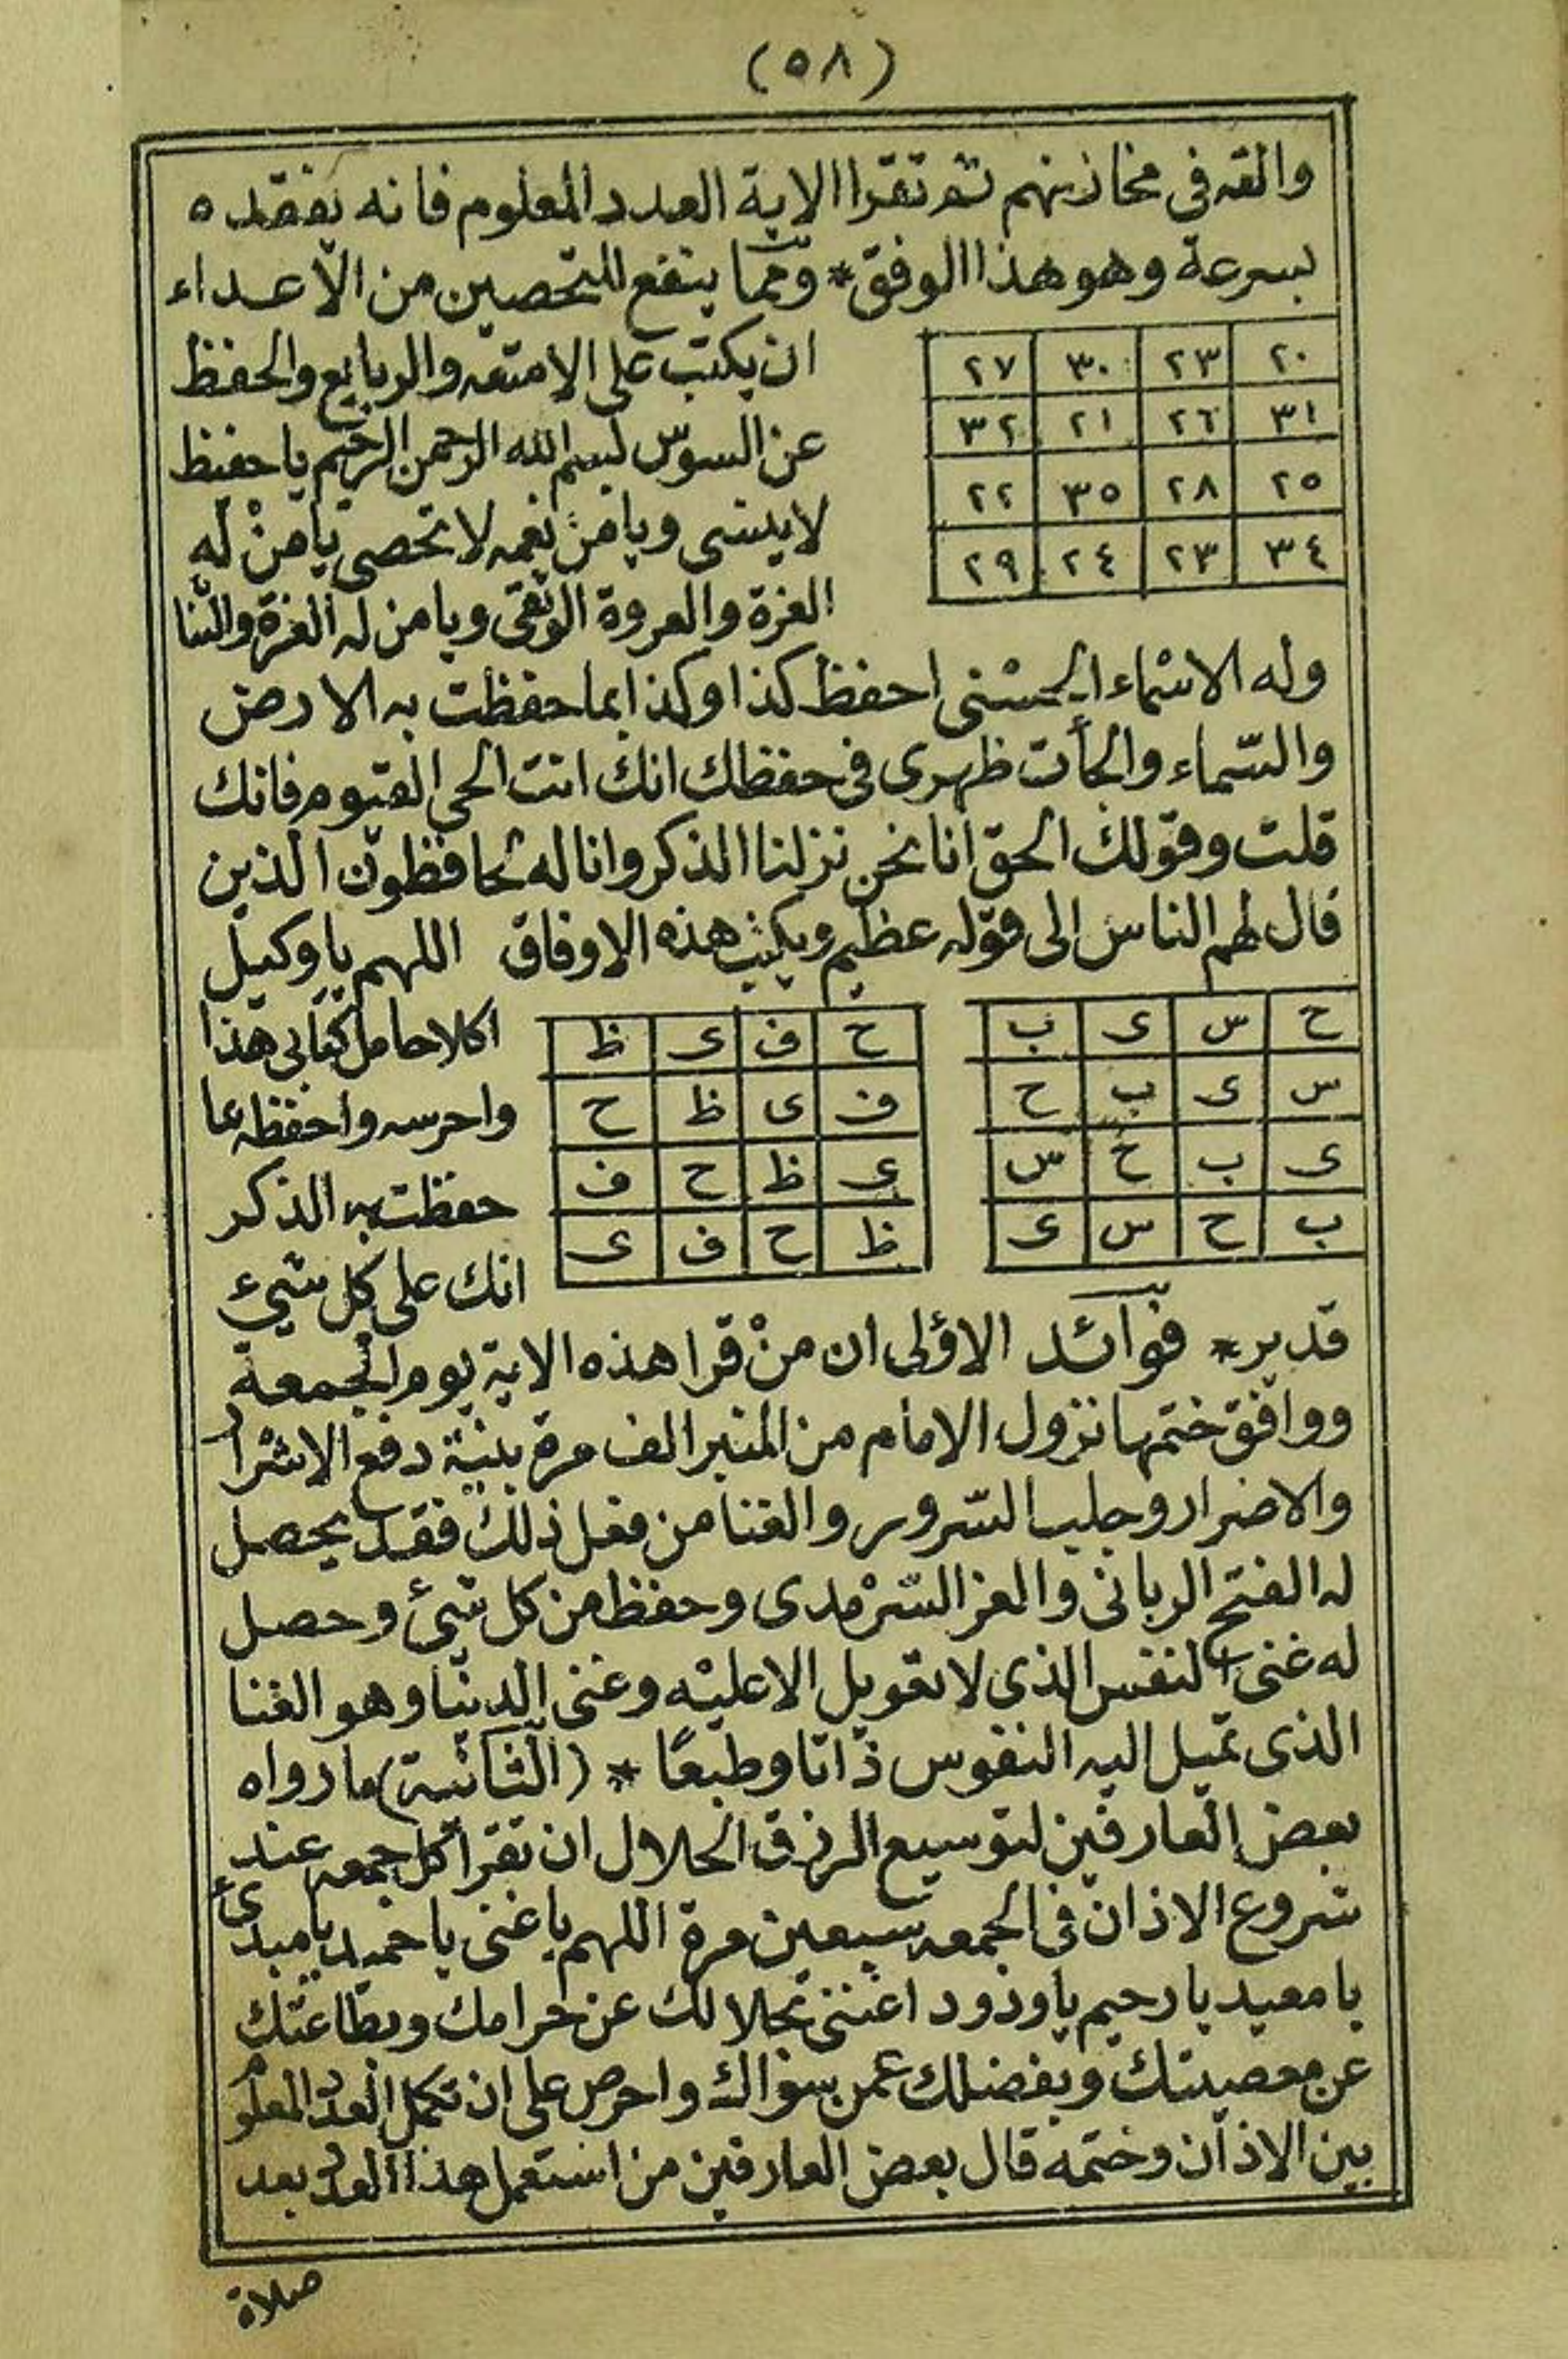 (٥٨)
والقه فى مخازنهم ثم تقرا الاية العدد المعلوم فانه يفقده
بسرعة وهو هذا الوفق * ومما ينفع للتحصين من الاعداء
٢٠ ٢٣ ٣٠ ٢٧
٣١ ٢٦ ٢١ ٣٢
٢٥ ٢٨ ٣٥ ٢٢
٣٤ ٢٣ ٢٤ ٢٩
ان يكتب على الامتعه والربايع والحفظ
عن السوس بسم الله الرحمن الرحيم ياحفيظ
لاينسى ويامن نعمه لاتحصى يامن له
العزة والعروة الوثقى ويامن له العزة والثنا
وله الاسماء الحسنى احفظ كذا وكذا بما حفظت به الارض
والسماء والجأت ظهرى فى حفظك انك انت الحى القيوم فانك
قلت وقولك الحق انا نحن نزلنا الذكر وانا له لحافظون الذين
قال لهم الناس الى قوله عظيم ويكتب هذه الاوفاق اللهم ياوكيل
ح س ى ب
س ى ب ح
ى ب ح س
ب ح س ى
ح ف ى ظ
ف ى ظ ح
ى ظ ح ف
ظ ح ف ى
اكلا حامل كتابى هذا
واحرسه واحفظه بما
حفظت به الذكر
انك على كل شيء
قدير * فوائد الاولى ان من قرا هذه الاية يوم الجمعة
ووافق ختمها نزول الامام من المنبر الف مرة بنية دفع الاشرار
والاضرار وجلب السرور والغنا من فعل ذلك فقد يحصل
له الفتح الربانى والعز السرمدى وحفظ من كل شئ وحصل
له غنى النفس الذى لا تعويل الا عليه وغنى الدنيا وهو الغنا
الذى تميل اليه النفوس ذاتا وطبعا * (الثانية) ما رواه
بعض العارفين لتوسيع الرزق الحلال ان تقرا كل جمعه عند
شروع الاذان فى الجمعه سبعين مرة اللهم ياغنى ياحميد يامبدئ
يامعيد يارحيم ياودود اغننى بحلالك عن حرامك وبطاعتك
عن معصيتك وبفضلك عمن سواك واحرص على ان تكمل العدد المعلوم
بين الاذان وختمه قال بعض العارفين من استعمل هذا العدد بعد
صلاة